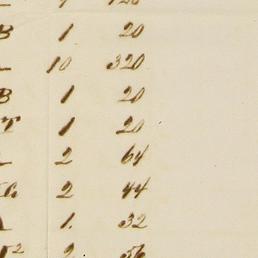 B 1 20
10 320
B 1 20
1 20
2 64
2 44
1. 32
2 2 56